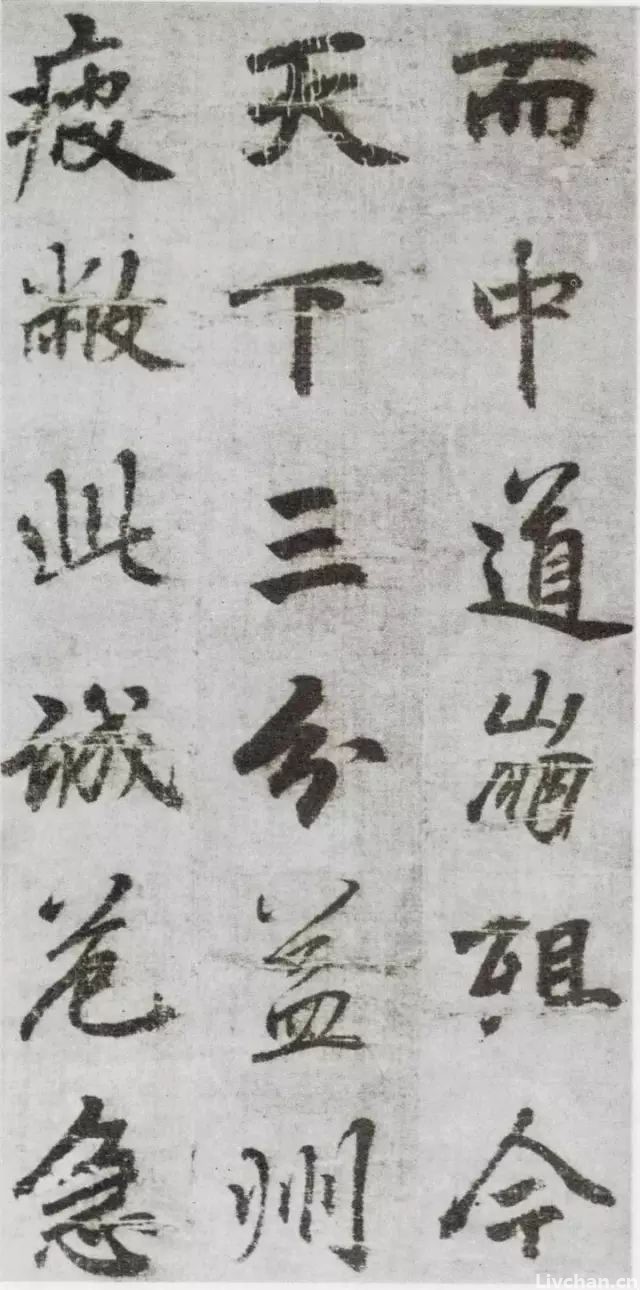 而中道崩殂今
天下三分益州
疲敝此誠危急
Livchan.cn